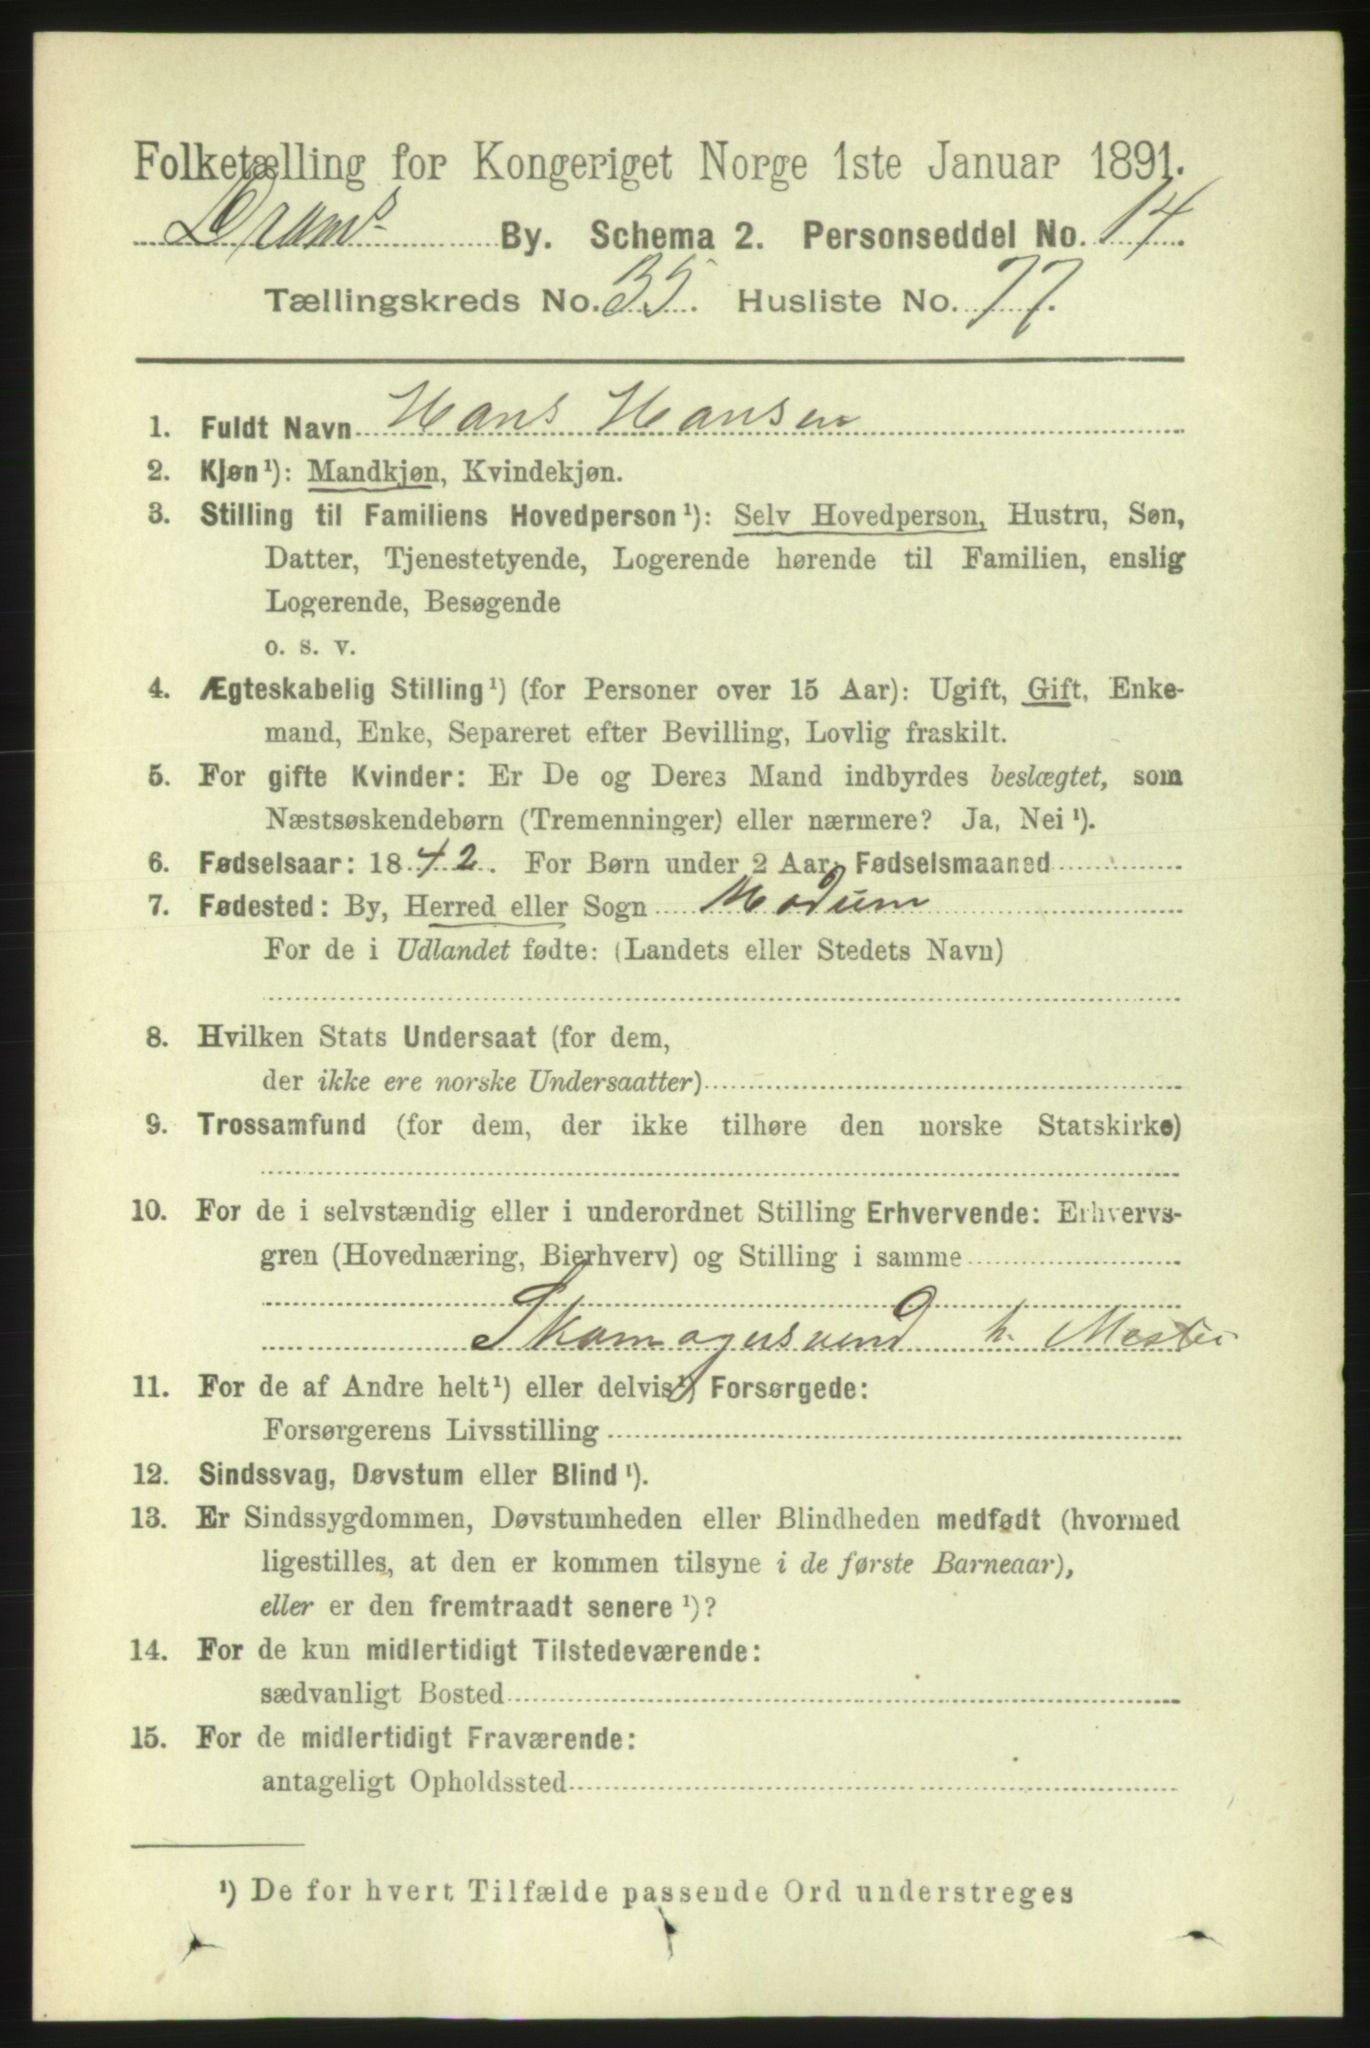 Folketælling for Kongeriget Norge 1ste Januar 1891.
Drams By. Schema 2. Personseddel No. 14.
Tællingskreds No. 35. Husliste No. 77.
1. Fuldt Navn Hans Hansen
2. Kjøn¹): Mandkjøn, Kvindekjøn.
3. Stilling til Familiens Hovedperson¹): Selv Hovedperson, Hustru, Søn,
Datter, Tjenestetyende, Logerende hørende til Familien, enslig
Logerende, Besøgende
o. s. v.
4. Ægteskabelig Stilling¹) (for Personer over 15 Aar): Ugift, Gift, Enke-
mand, Enke, Separeret efter Bevilling, Lovlig fraskilt.
5. For gifte Kvinder: Er De og Deres Mand indbyrdes beslægtet, som
Næstsøskendebørn (Tremenninger) eller nærmere? Ja, Nei¹).
6. Fødselsaar: 1842. For Børn under 2 Aar: Fødselsmaaned
7. Fødested: By, Herred eller Sogn Modum
For de i Udlandet fødte: (Landets eller Stedets Navn)
8. Hvilken Stats Undersaat (for dem,
der ikke ere norske Undersaatter)
9. Trossamfund (for dem, der ikke tilhøre den norske Statskirke)
10. For de i selvstændig eller i underordnet Stilling Erhvervende: Erhvervs-
gren (Hovednæring, Bierhverv) og Stilling i samme
Skomagersvend h. Mester
11. For de af Andre helt¹) eller delvis¹) Forsørgede:
Forsørgerens Livsstilling
12. Sindssvag, Døvstum eller Blind¹).
13. Er Sindssygdommen, Døvstumheden eller Blindheden medfødt (hvormed
ligestilles, at den er kommen tilsyne i de første Barneaar),
eller er den fremtraadt senere¹)?
14. For de kun midlertidigt Tilstedeværende:
sædvanligt Bosted
15. For de midlertidigt Fraværende:
antageligt Opholdssted
¹) De for hvert Tilfælde passende Ord understreges